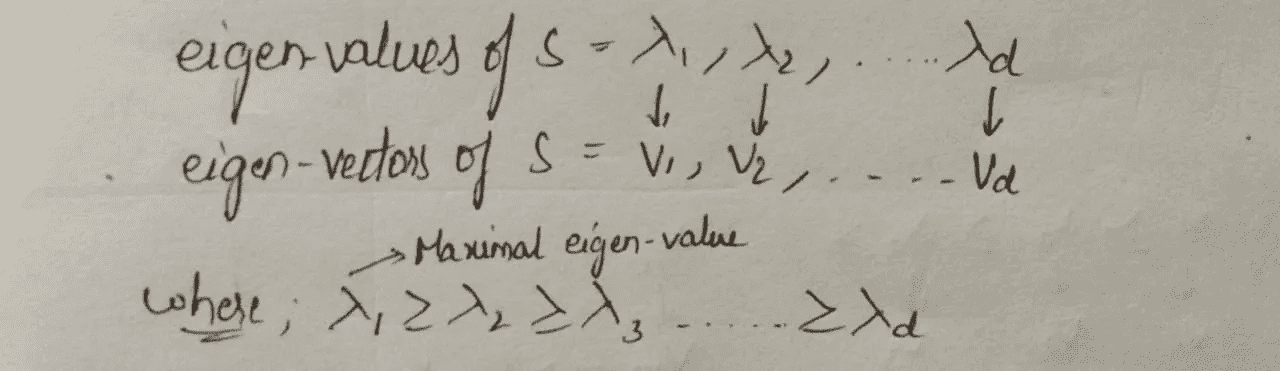 eigen-values of S = λ₁, λ₂, ..... λd
↓ ↓ ↓
eigen-vectors of S = V₁, V₂, ..... Vd
→ Maximal eigen-value
where; λ₁ ≥ λ₂ ≥ λ₃ ...... ≥ λd